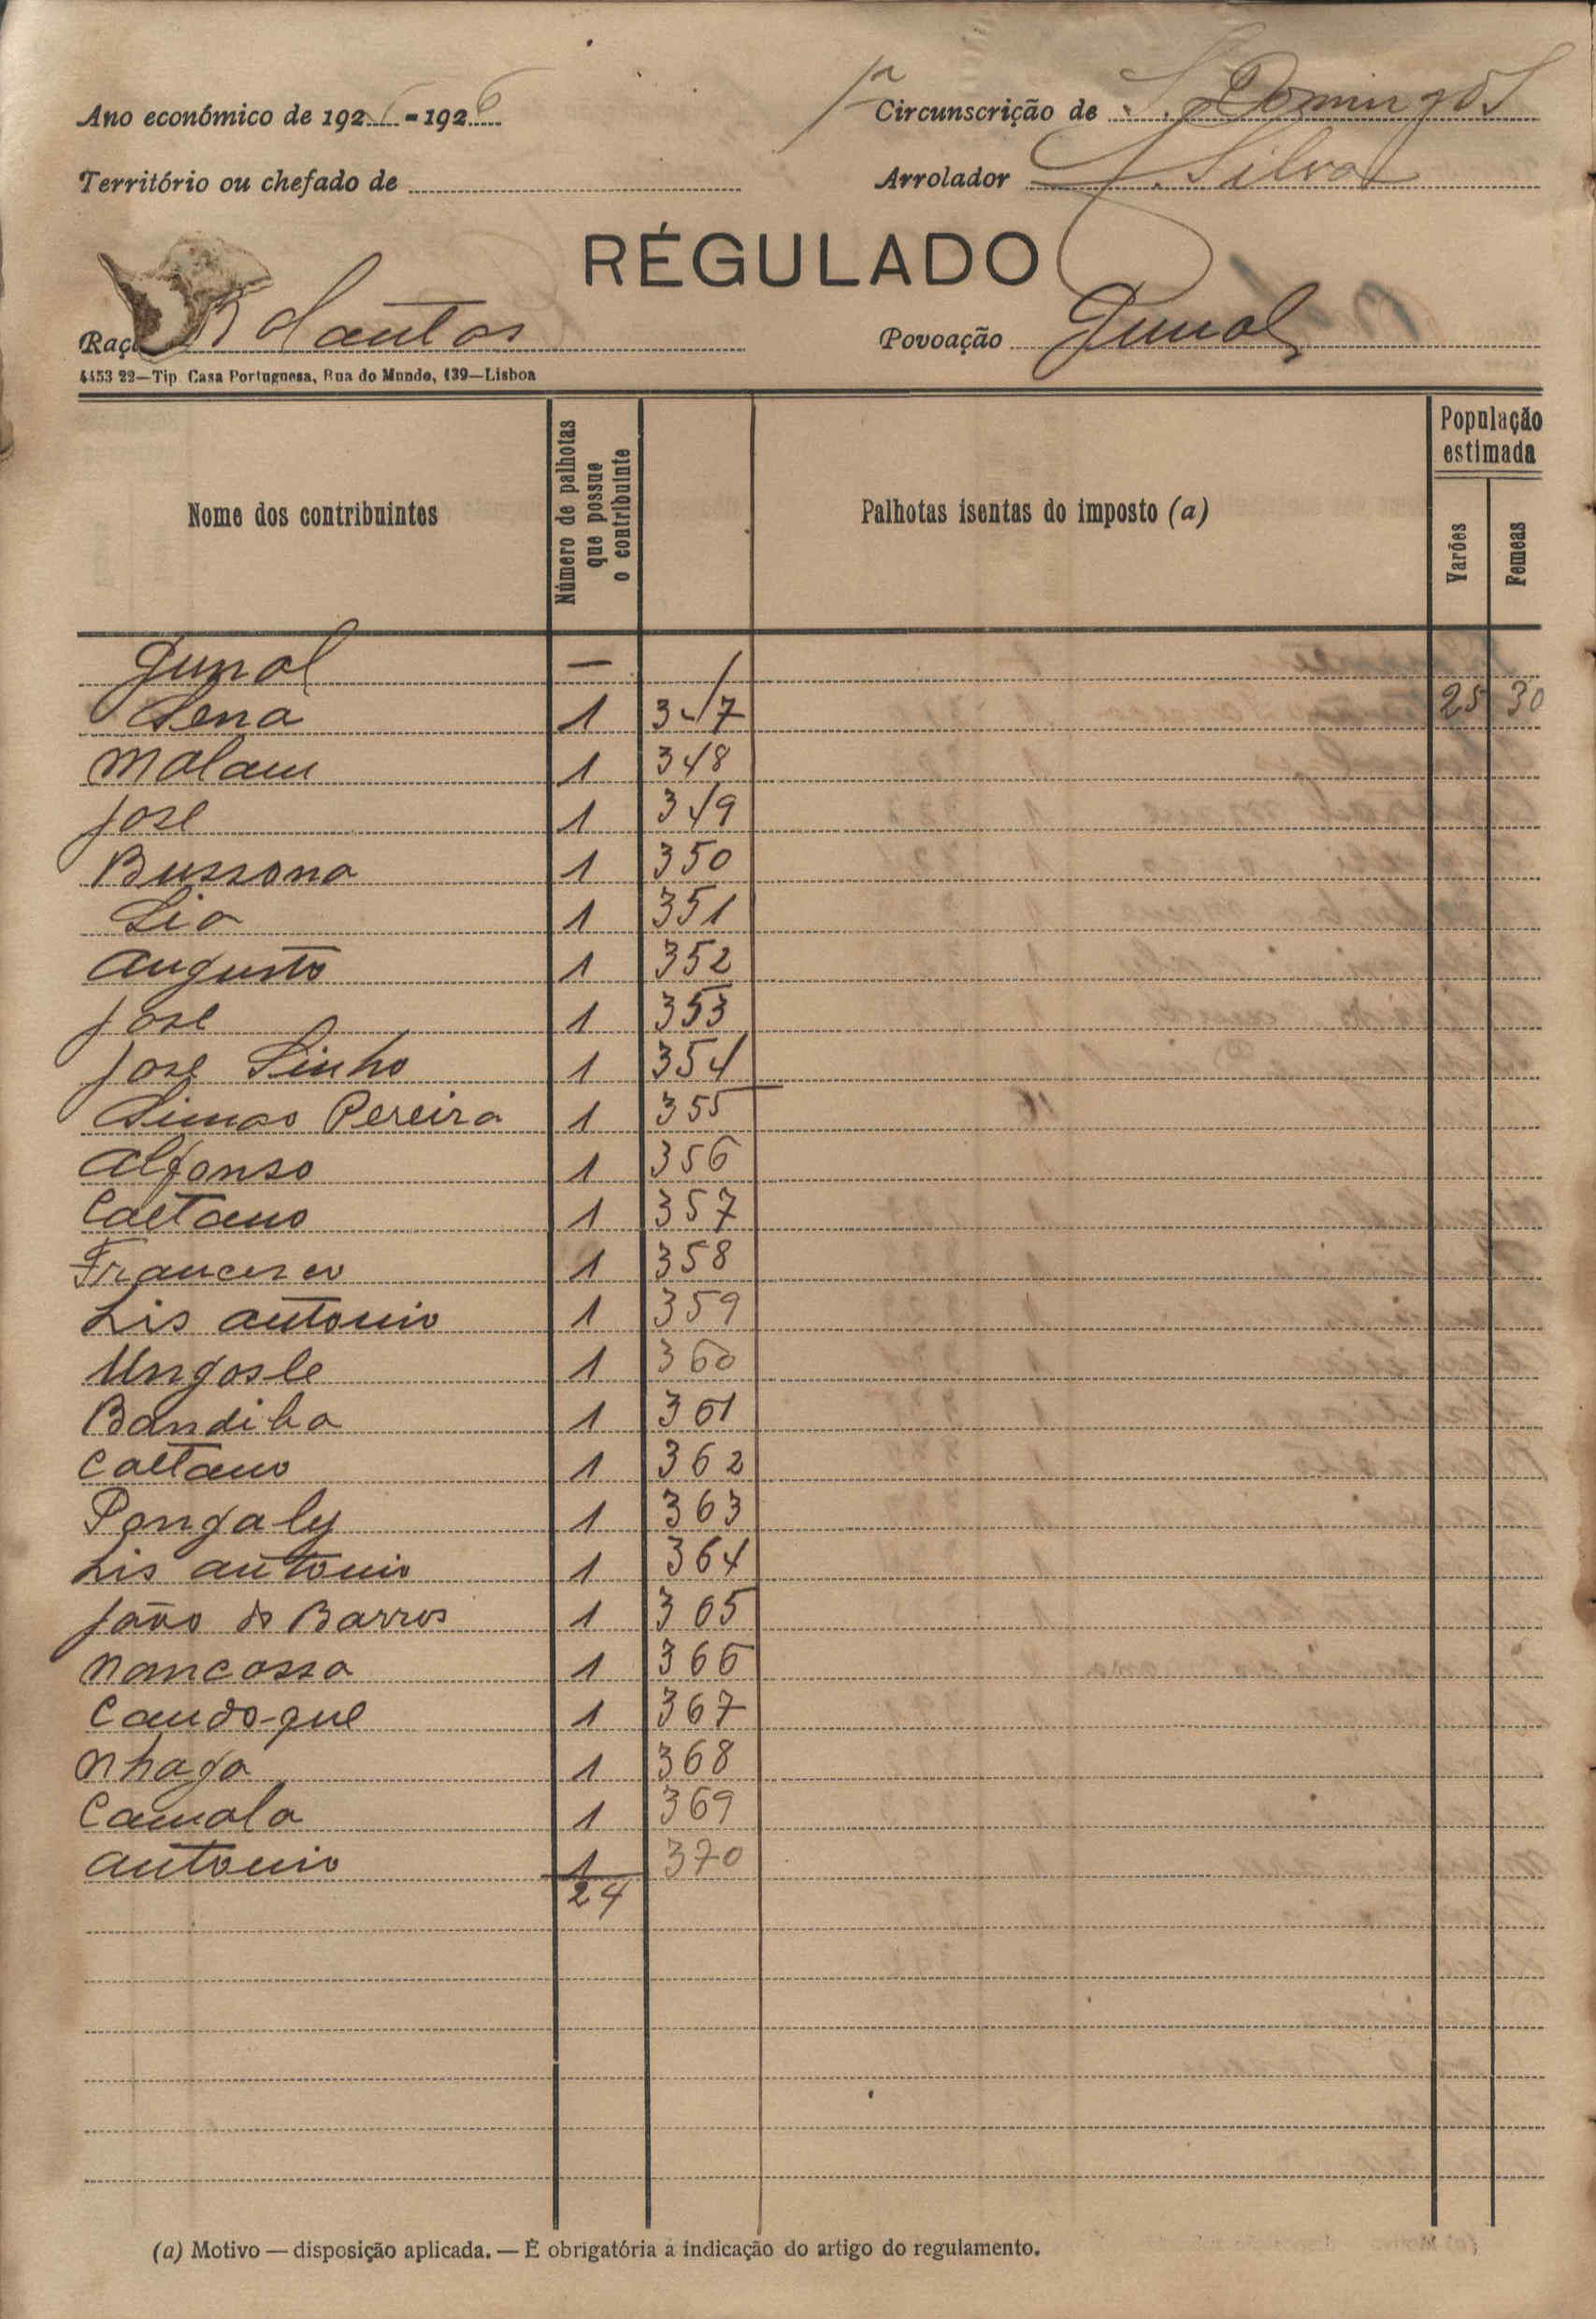 Ano económico de 192 -1926
1ª Circunscrição de S. Domingos
Território ou chefado de
Arrolador J. Silva
RÉGULADO
Raça
Povoação Junal
4453 22—Tip. Casa Portuguesa, Rua do Mundo, 139—Lisboa
Nome dos contribuintes
Número de palhotas que possue o contribuinte
Palhotas isentas do imposto (a)
População estimada
Varões
Femeas
Junal —
Sena 1 347 25 30
Malam 1 348
José 1 349
Bussona 1 350
Lia 1 351
Augusto 1 352
José 1 353
José Sinho 1 354
Simão Pereira 1 355
Alfonso 1 356
Caetano 1 357
Francisco 1 358
Lis Antonio 1 359
Ungosle 1 360
Bandiba 1 361
Caetano 1 362
Pongaly 1 363
Lis Antonio 1 364
João de Barros 1 365
Nancassa 1 366
Caudo-que 1 367
Nhaga 1 368
Camala 1 369
Antonio 1 370
24
(a) Motivo — disposição aplicada. — É obrigatória a indicação do artigo do regulamento.